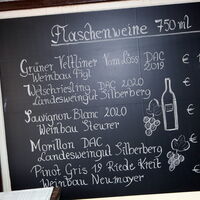 Flaschenweine 750ml
Grüner Veltliner Vom Löss DAC 2019 €
Weinbau Figl
Welschriesling DAC 2020 €
Landesweingut Silberberg
Sauvignon Blanc 2020
Weinbau Steurer
Morillon DAC €
Landesweingut Silberberg
Pinot Gris 19 Riede Kreit €
Weinbau Neumayer